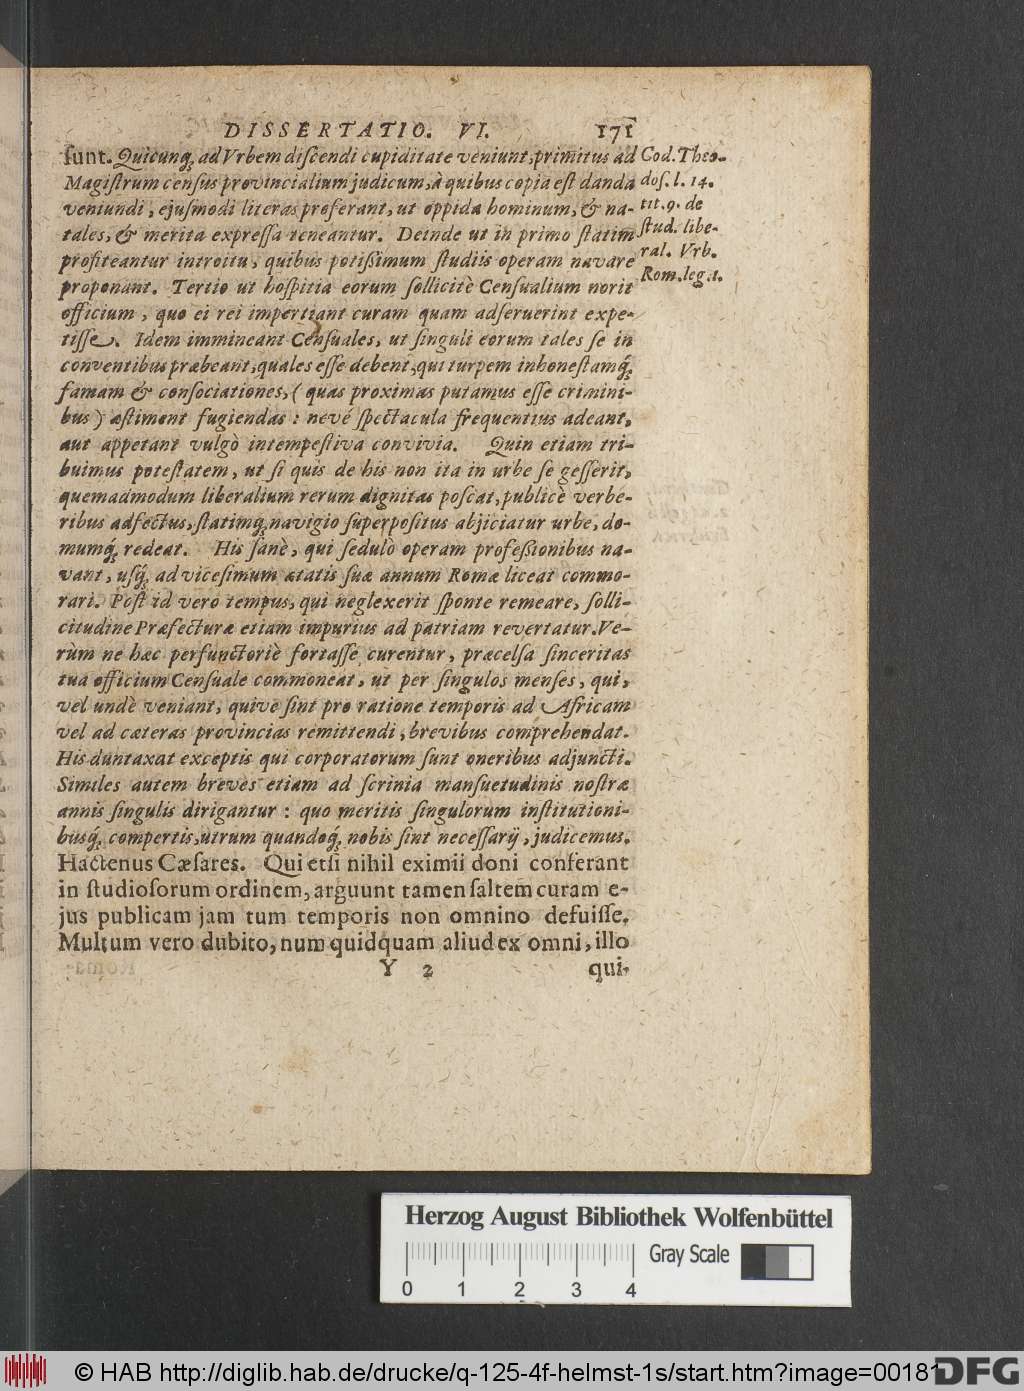 DISSERTATIO. VI. 171
ſunt. Quicunq́; ad Vrbem diſcendi cupiditate veniunt, primitus ad
Magiſtrum cenſus provincialium judicum, à quibus copia eſt danda
veniundi, ejuſmodi literas proferant, ut oppida hominum, & na-
tales, & merita expreſſa teneantur. Deinde ut in primo ſtatim
profiteantur introitu, quibus potiſſimum ſtudiis operam navare
proponant. Tertio ut hoſpitia eorum ſollicitè Cenſualium norit
officium, quo ei rei impertiant curam quam adſeruerint expe-
tiſſe. Idem immineant Cenſuales, ut ſinguli eorum tales ſe in
conventibus præbeant, quales eſſe debent, qui turpem inhoneſtamq́;
famam & conſociationes, (quas proximas putamus eſſe crimini-
bus) æſtiment fugiendas: nevé ſpectacula frequentius adeant,
aut appetant vulgò intempeſtiva convivia. Quin etiam tri-
buimus poteſtatem, ut ſi quis de his non ita in urbe ſe geſſerit,
quemadmodum liberalium rerum dignitas poſcat, publicè verbe-
ribus adfectus, ſtatimq́; navigio ſuperpoſitus abjiciatur urbe, do-
mumq́; redeat. His ſanè, qui ſedulò operam profeſſionibus na-
vant, uſq́; ad viceſimum ætatis ſuæ annum Romæ liceat commo-
rari. Poſt id vero tempus, qui neglexerit ſponte remeare, ſolli-
citudine Præfecturæ etiam impurius ad patriam revertatur. Ve-
rùm ne hæc perfunctoriè fortaſſe curentur, præcelſa ſinceritas
tua officium Cenſuale commoneat, ut per ſingulos menſes, qui,
vel undè veniant, quive ſint pro ratione temporis ad Africam
vel ad cæteras provincias remittendi, brevibus comprehendat.
His duntaxat exceptis qui corporatorum ſunt oneribus adjuncti.
Similes autem breves etiam ad ſcrinia manſuetudinis noſtræ
annis ſingulis dirigantur: quo meritis ſingulorum inſtitutioni-
busq́; compertis, utrum quandoq́; nobis ſint neceſſarij, judicemus.
Hactenus Cæſares. Qui etſi nihil eximii doni conferant
in ſtudioſorum ordinem, arguunt tamen ſaltem curam e-
jus publicam jam tum temporis non omnino defuiſſe.
Multum vero dubito, num quidquam aliud ex omni, illo
Y 2 qui-
Cod. Theo-
doſ. l. 14.
tit. 9. de
ſtud. libe-
ral. Vrb.
Rom. leg. 1.
Herzog August Bibliothek Wolfenbüttel
Gray Scale
0 1 2 3 4
© HAB http://diglib.hab.de/drucke/q-125-4f-helmst-1s/start.htm?image=00181
DFG